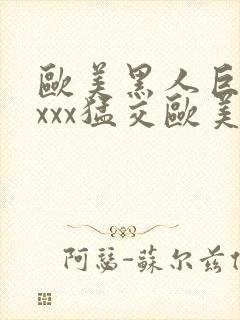 歐美黑人巨
xxx猛交歐美
阿瑟-蘇尔兹